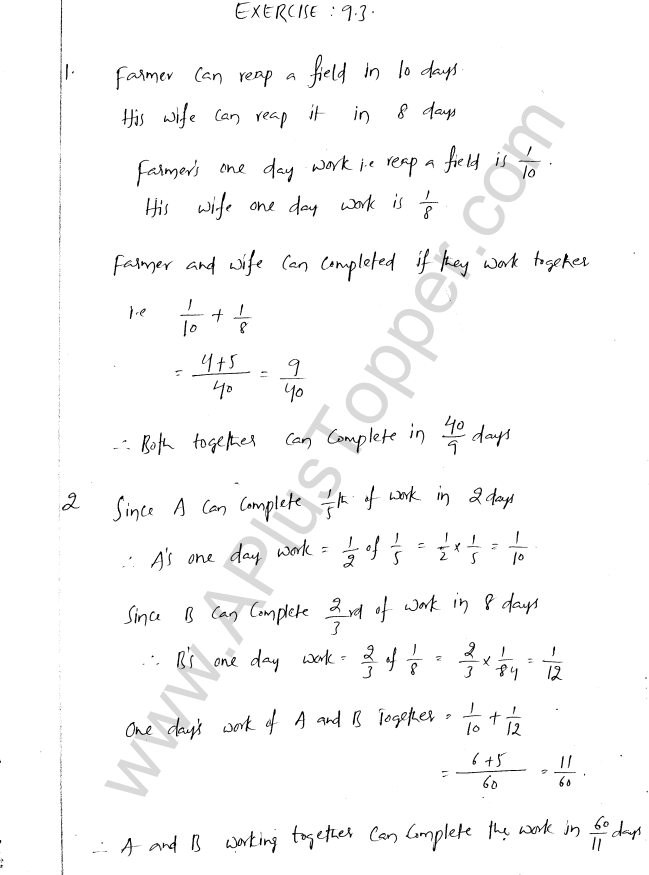 EXERCISE : 9.3.
1. Farmer can reap a field in 10 days
His wife can reap it in 8 days
Farmer's one day work i.e reap a field is 1/10.
His wife one day work is 1/8
Farmer and wife can completed if they work together
i.e 1/10 + 1/8
= 4+5/40 = 9/40
∴ Both together can complete in 40/9 days
2 Since A can complete 1/5th of work in 2 days
∴ A's one day work = 1/2 of 1/5 = 1/2 × 1/5 = 1/10
Since B can complete 2/3rd of work in 8 days
∴ B's one day work = 2/3 of 1/8 = 2/3 × 1/84 = 1/12
One day's work of A and B together = 1/10 + 1/12
= 6+5/60 = 11/60.
∴ A and B working together can complete the work in 60/11 days
www.APlusTopper.com